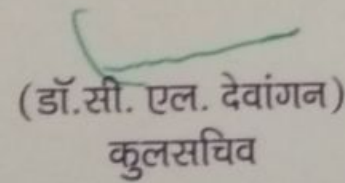 (डॉ.सी. एल. देवांगन)
कुलसचिव